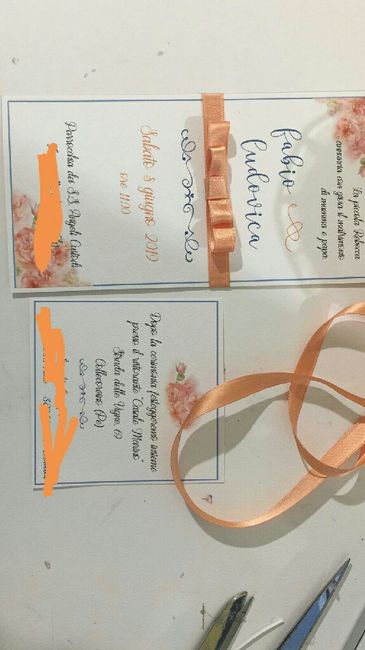 La piccola Rebecca
annuncia con gioia il matrimonio
di mamma e papà
fabio e
ludovica
Sabato 8 giugno 2019
ore 11:00
Parrocchia dei S.S. Angeli Custodi
Dopo la cerimonia festeggeremo insieme
presso il ristorante Casale Marino
Strada delle Vigne, 69
Collecorvino (Pe)